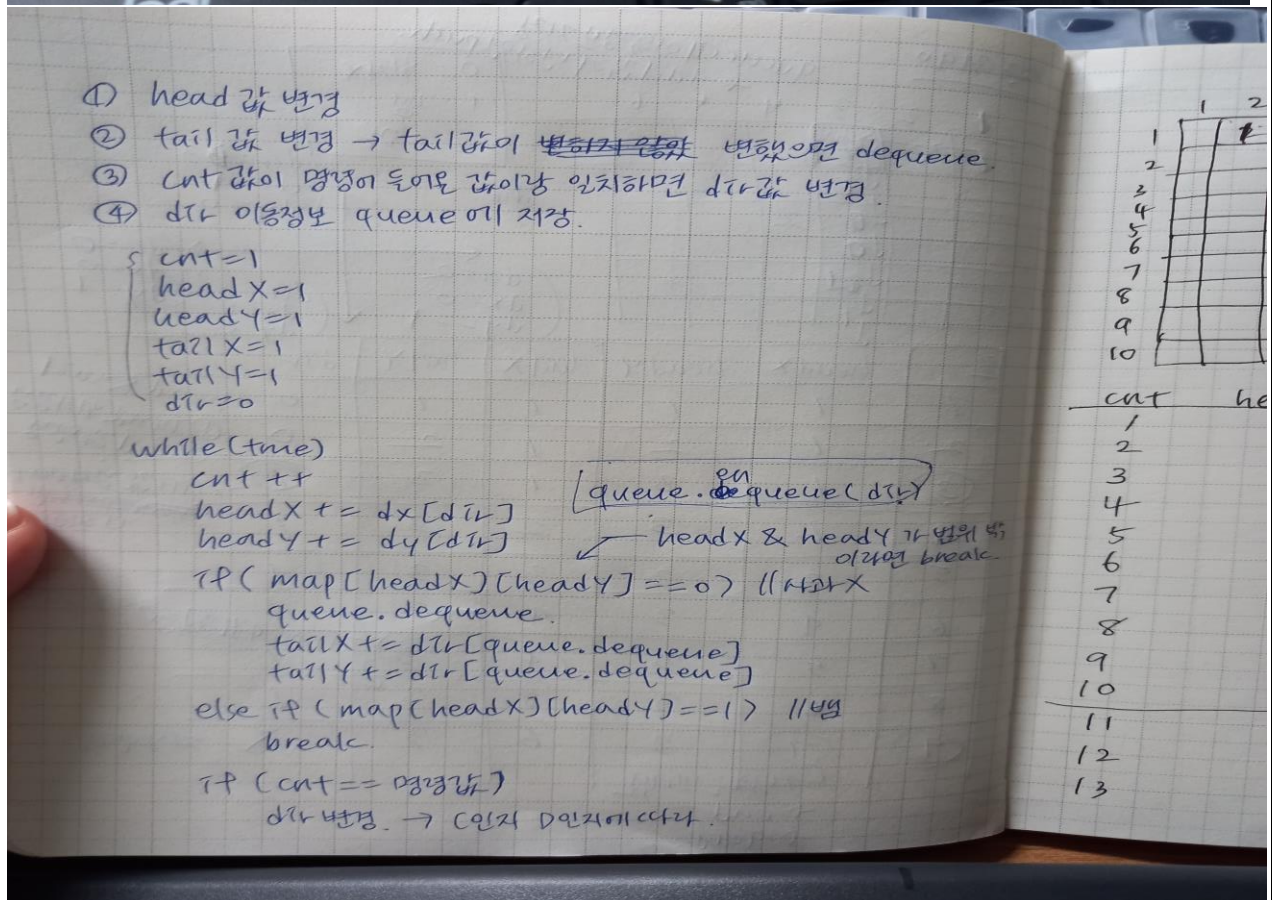 ① head 값 변경
② tail 값 변경 → tail값이 변하지 않았 변했으면 dequeue.
③ cnt 값이 명령이 들어온 값이랑 일치하면 dir값 변경.
④ dir 이동정보 queue에 저장.
cnt=1
headX=1
headY=1
tailX=1
tailY=1
dir=0
while(true)
cnt++
queue.enqueue(dir)
headX += dx[dir]
headY += dy[dir]
headX & headY가 범위 밖
이라면 break.
if( map[headX][headY]==0) //사과X
queue.dequeue.
tailX += dir[queue.dequeue]
tailY += dir[queue.dequeue]
else if (map[headX][headY]==1) //뱀
break.
if (cnt== 명령값)
dir 변경. → C인지 D인지에 따라.
1 2
1
2
3
4
5
6
7
8
9
10
cnt he
1
2
3
4
5
6
7
8
9
10
11
12
13